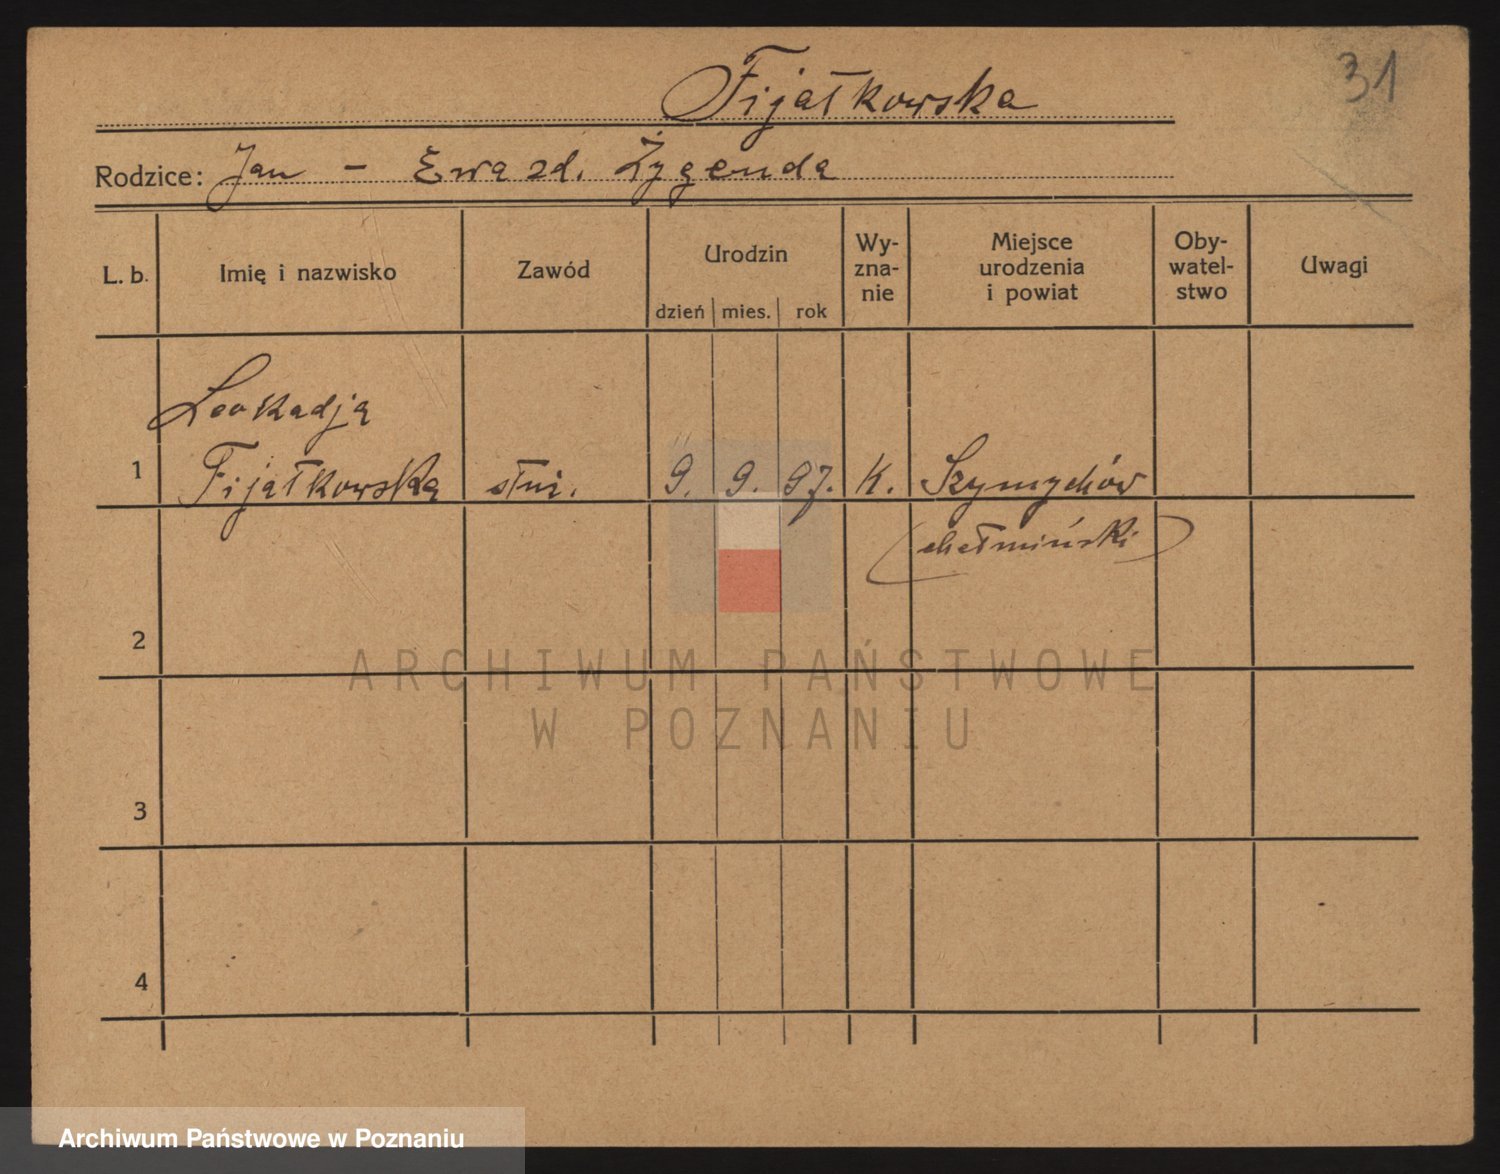 31
Fijałkowska
Rodzice: Jan - Ewa zd. Żygenda
L. b. Imię i nazwisko Zawód Urodzin dzień mies. rok Wy-zna-nie Miejsce urodzenia i powiat Oby-watel-stwo Uwagi
Leokadja
1 Fijałkowska służ. 9. 9. 97. k. Szymychów
(chełmiński)
2
ARCHIWUM PAŃSTWOWE
W POZNANIU
3
4
Archiwum Państwowe w Poznaniu